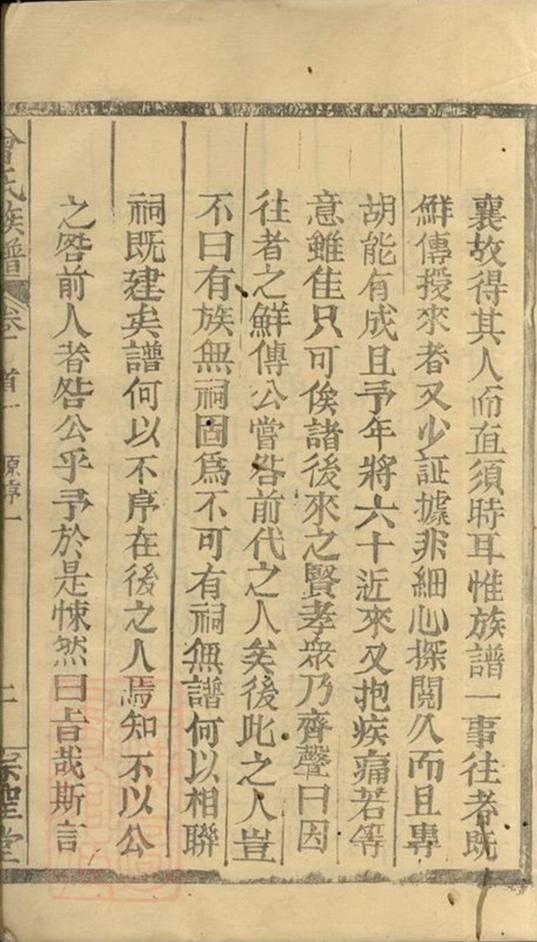 襄故得其人而直須時耳惟族譜一事往者既
鮮傳授來者又少証據非細心探閱久而且專
胡能有成且予年將六十近來又抱疾痛若等
意雖佳只可俟諸後來之賢孝眾乃齊聲曰因
往者之鮮傳公嘗咎前代之人矣後此之人豈
不曰有族無祠固爲不可有祠無譜何以相聯
祠既建矣譜何以不序在後之人焉知不以公
之咎前人者咎公乎予於是悚然曰旨哉斯言
曾氏族譜 卷 首一 原序一 二 宗聖堂